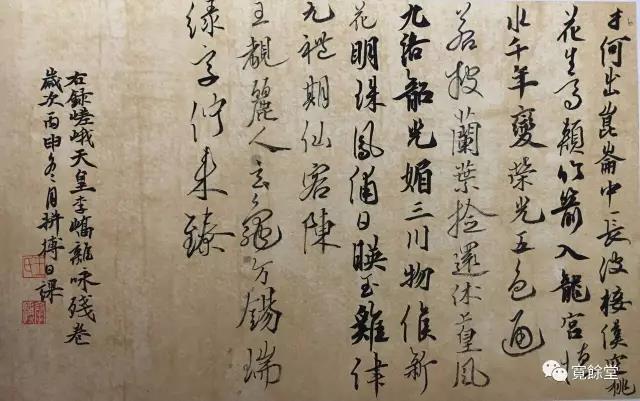 何出崑崙中長波接漢空桃
花生馬頰竹箭入龍宮
水千年變榮光五色通
若披蘭葉撿還沐上皇風
九洛韶光媚三川物候新
花明珠鳳浦日映玉雞津
元禮期仙客陳
王覩麗人玄龜方錫瑞
綠字佇来臻
右錄嵯峨天皇李嶠雜咏殘卷
歲次丙申冬月拼搏日課
寬餘堂